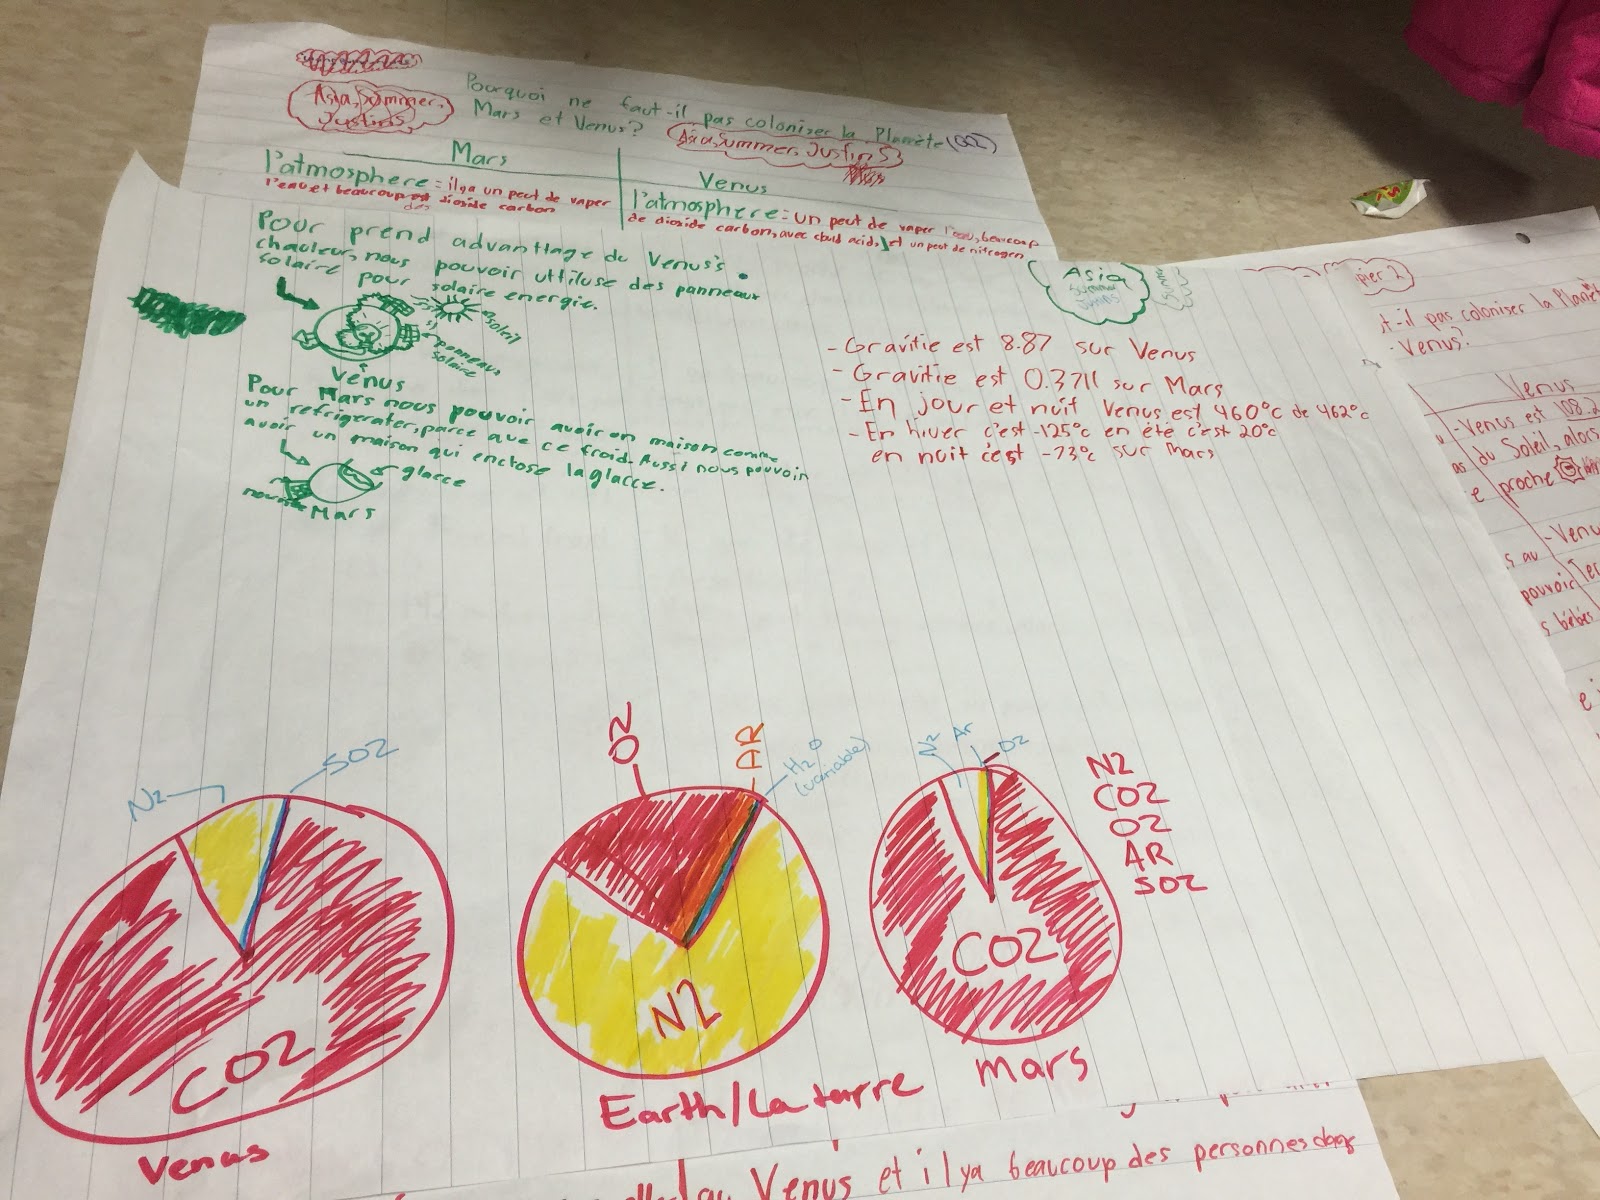 Asia, Summer,
Justins
Pourquoi ne faut-il pas coloniser la Planète
Mars et Venus?
(002)
Asia, Summer, Justin S
Mars
l'atmosphere = il ya un peut de vaper
l'eau et beaucoup des dioxide carbon
Venus
l'atmosphere = un peut de vaper l'eau, beaucoup
de dioxide carbon, avec cloud acids, et un peut de nitrogen
Pour prend advanttage du Venus's
chauleur, nous pouvoir uttiluse des panneaux
solaire pour solaire energie.
soleil
panneaux
solaire
Vénus
Pour Mars nous pouvoir avoir on maison comme
un refrigerater, parce que ce froid. Aussi nous pouvoir
avoir un maison qui enclose la glacce.
glacce
Mars
Asia,
Summer
Justins
- Gravitie est 8.87 sur Venus
- Gravitie est 0.3711 sur Mars
- En jour et nuit Venus est 460°c de 462°c
- En hiver c'est -125°c en été c'est 20°c
en nuit c'est -73°c sur Mars
pier 2
t-il pas coloniser la Planèt
Venus?
Venus
- Venus est 108.2
du Soleil, alors
e proche
- Venu
s au
pouvoir
Ter
s bébés
N2
SO2
CO2
Venus
O2
AR
H2O
(variable)
N2
Earth/La terre
N2
Ar
O2
CO2
Mars
N2
CO2
O2
AR
SO2
Venus et il ya beaucoup des personnes dans